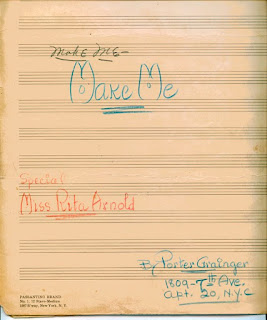 Make Me-
Make Me
Special
Miss Rita Arnold
By Porter Grainger
1809-7th Ave.
apt. 20, N.Y.C
PASSANTINO BRAND
No. 1. 12 Stave Medium